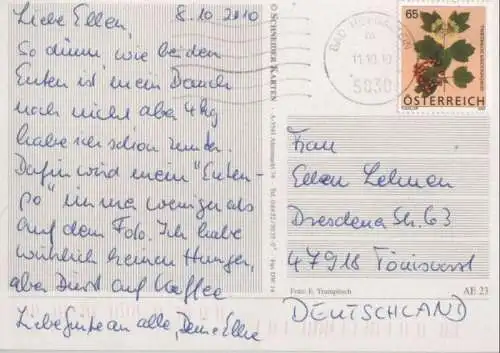 Liebe Ellen, 8.10.2010
So dünn, wie bei den
Enten ist mein Bauch
noch nicht aber 4 kg
habe ich schon runter.
Dafür wird mein "Enten-
po" immer weniger als
auf dem Foto. Ich habe
wirklich keinen Hunger,
aber Durst auf Kaffee
Liebe Grüße an alle, Deine Ellie
© SCHNEIDER KARTEN
BAD
11.10.10
65
ÖSTERREICH
Frau
Ellen Lehmen
Dresdener Str. 63
47918 Tönisvorst
DEUTSCHLAND
Foto: E. Trumpitsch AE 23